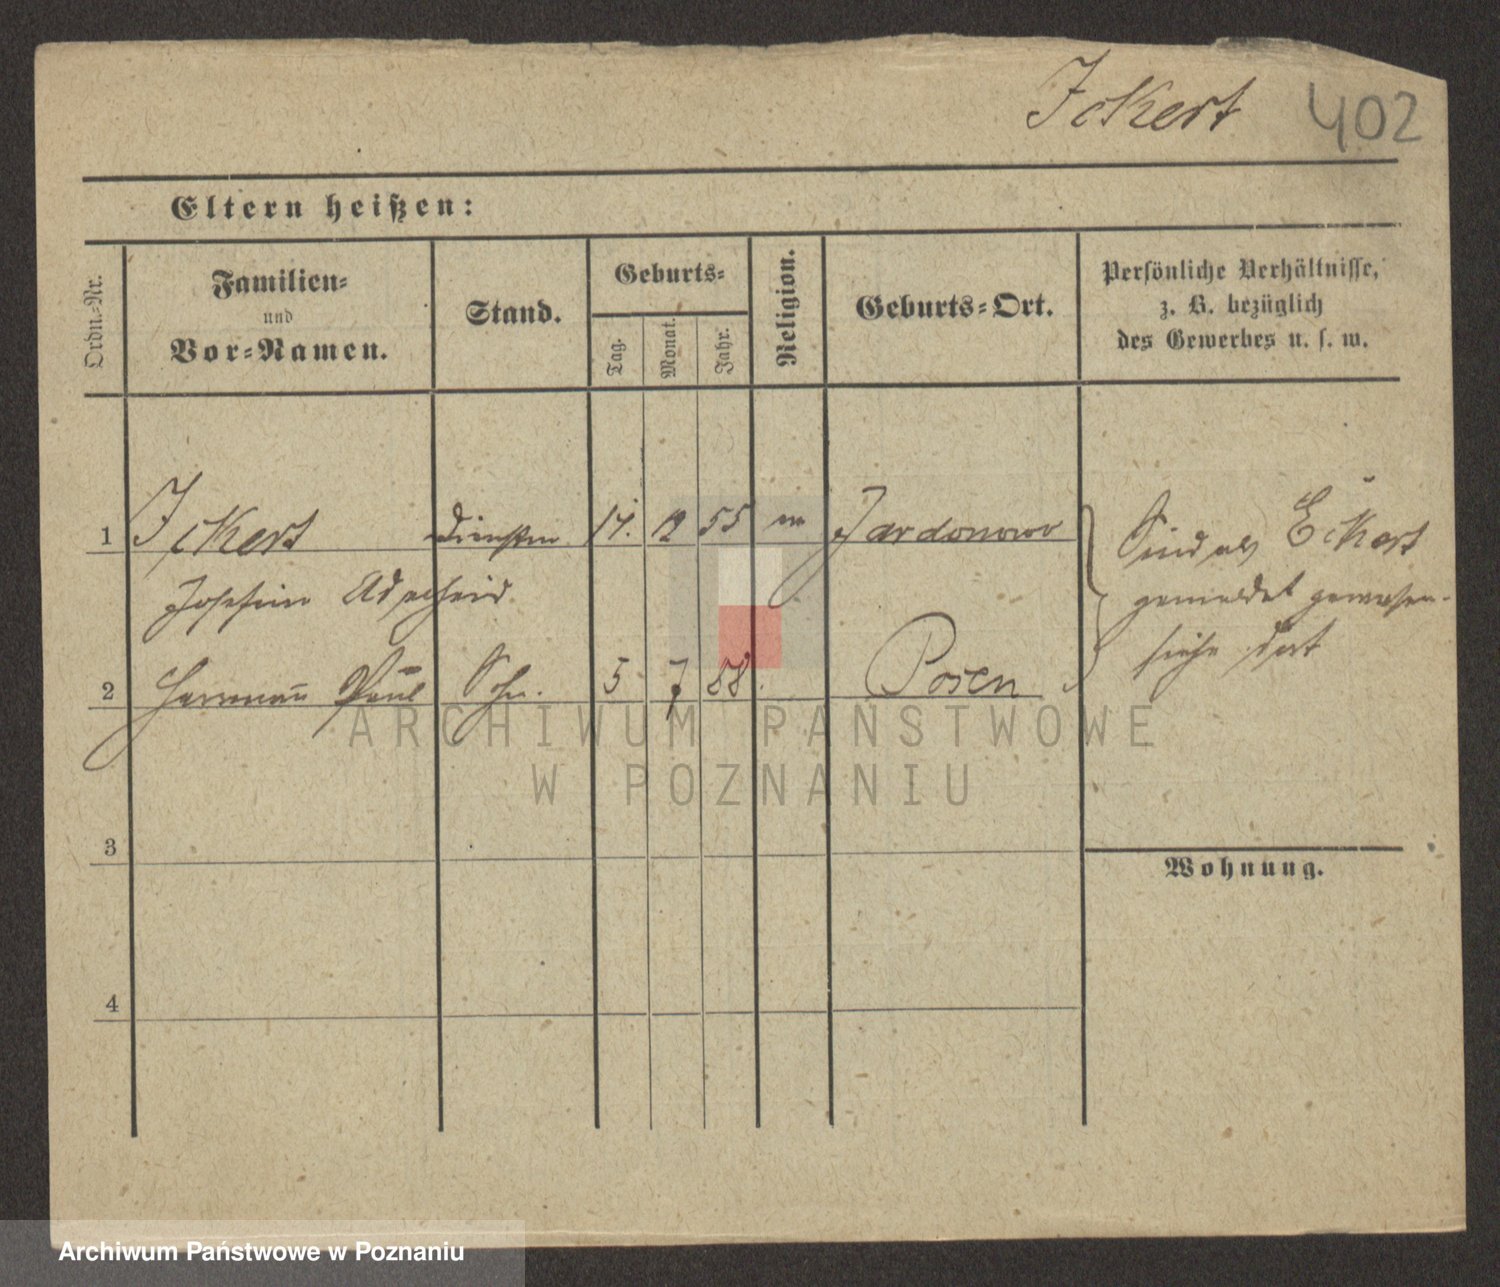 Ickert 402
Eltern heißen:
Ordn.-Nr.
Familien-
und
Vor-Namen.
Stand.
Geburts-
Tag.
Monat.
Jahr.
Religion.
Geburts-Ort.
Persönliche Verhältnisse,
z. B. bezüglich
des Gewerbes u. s. w.
1 Ickert 12 55 Jardonowo
Josefine Adelheid
2 Herrman Paul Sohn. 5 7 88. Posen
Sind als Eckert
gemeldet gewesen.
siehe dort
3
Wohnung.
4
ARCHIWUM PAŃSTWOWE
W POZNANIU
Archiwum Państwowe w Poznaniu